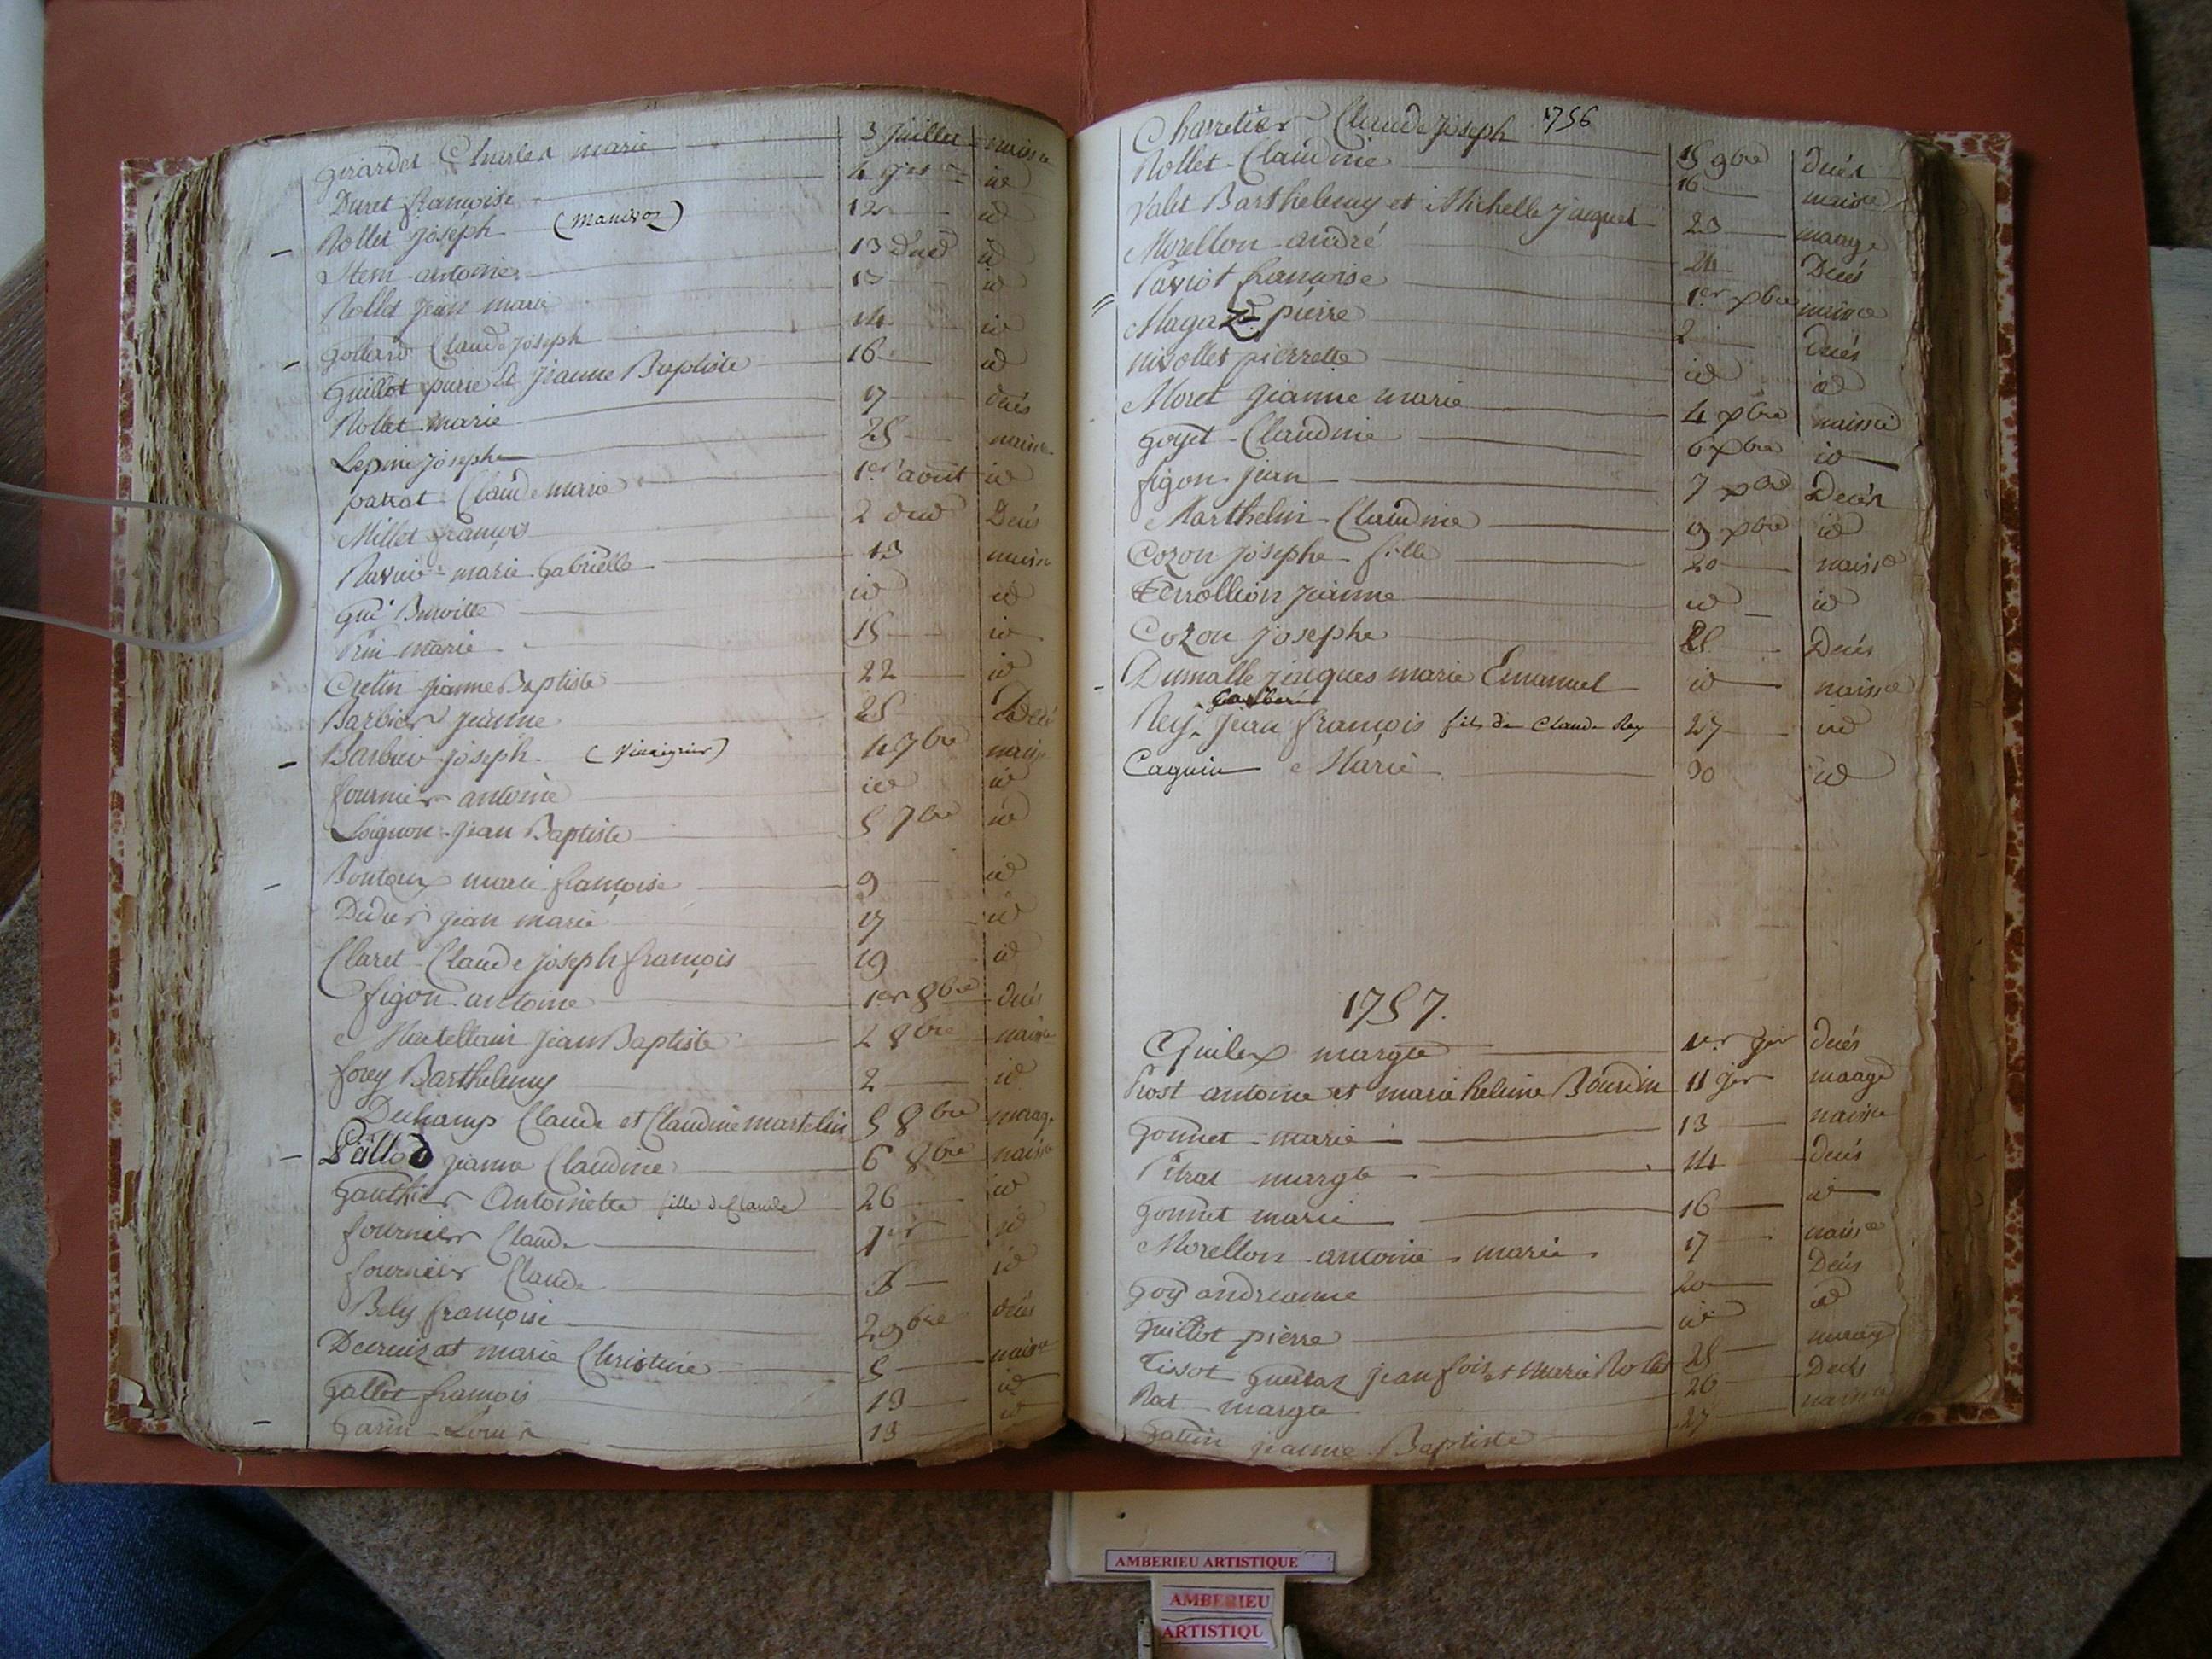 Girardet Charles marie 3 Juillet naisce
Duret françoise 4 id
Rollet Joseph (manissoz) 12 id
Item antoine 13 Dud id
Rollet Jean marie 13 id
Gottard Claude Joseph 14 id
Guillot pierre et Jeanne Baptiste 16 id
Rollet marie 17 decés
Lepine Josephe 25 naisce
parrat Claude marie 1er aout id
Millet françois 2 dud Decés
Ravier marie Gabrielle 13 naisce
Gué Burville id id
Prin marie 15 id
Cretin Jeanne Baptiste 22 id
Barbier Jeanne 25 Decés
Barbier Joseph (Vinaigrier) 4 7bre naisce
fournier antoine id id
Loignon Jean Baptiste 5 7bre id
Bontoux marie françoise 9 id
Didier Jean marie 17 id
Claret Claude Joseph françois 19 id
figon antoine 1er 8bre decés
Jean Baptiste 2 8bre naisce
forey Barthelemy 2 id
Duchamp Claude et Claudine martelin 5 8bre mariag.
Paillod Jeanne Claudine 6 8bre naisce
Gauthier Antoinette fille de Claude 26 id
fournier Claude 1er id
fournier Claude id
Bely françoise 2 9bre decés
Decruizat marie Christine 5 naisce
Gallet françois 13 id
Garin Louis 13 id
1756
Charretier Claude Joseph 15 9bre Decés
Rollet Claudine 16 naisce
Valet Barthelemy et Michelle Jacquet 23 maage
Morellon andré 24 Decés
Parriot françoise 1er xbre naisce
pierre 2 Decés
nivollet pierrette id id
Moret Jeanne marie 4 xbre naisce
Goyet Claudine 6 xbre id
figon Jean 7 xbre Decés
Marthelin Claudine 9 xbre id
Cozon Josephe fille 20 naisce
Terrollion Jeanne id id
Cozon Josephe Decés
Dumalle Jacques marie Emanuel id naisce
Rey Jean françois fils de Claude Rey 27 id
Caguin Marie 30 id
1757.
Guilex margte 1er Jer decés
Prost antoine et marie helene Bourdin 11 Jer maage
Gonnet marie 13 naisce
Pitrat margte 14 decés
Gonnet marie 16 id
Morellon antoine marie 17 naisce
Goy andreanne 20 Decés
Guillot pierre id id
Tissot Guerraz Jean fois et marie Rollet 25 mariag
Rat margte 26 Decés
Gattin Jeanne Baptiste 27 naisce
AMBERIEU ARTISTIQUE
AMBERIEU
ARTISTIQU